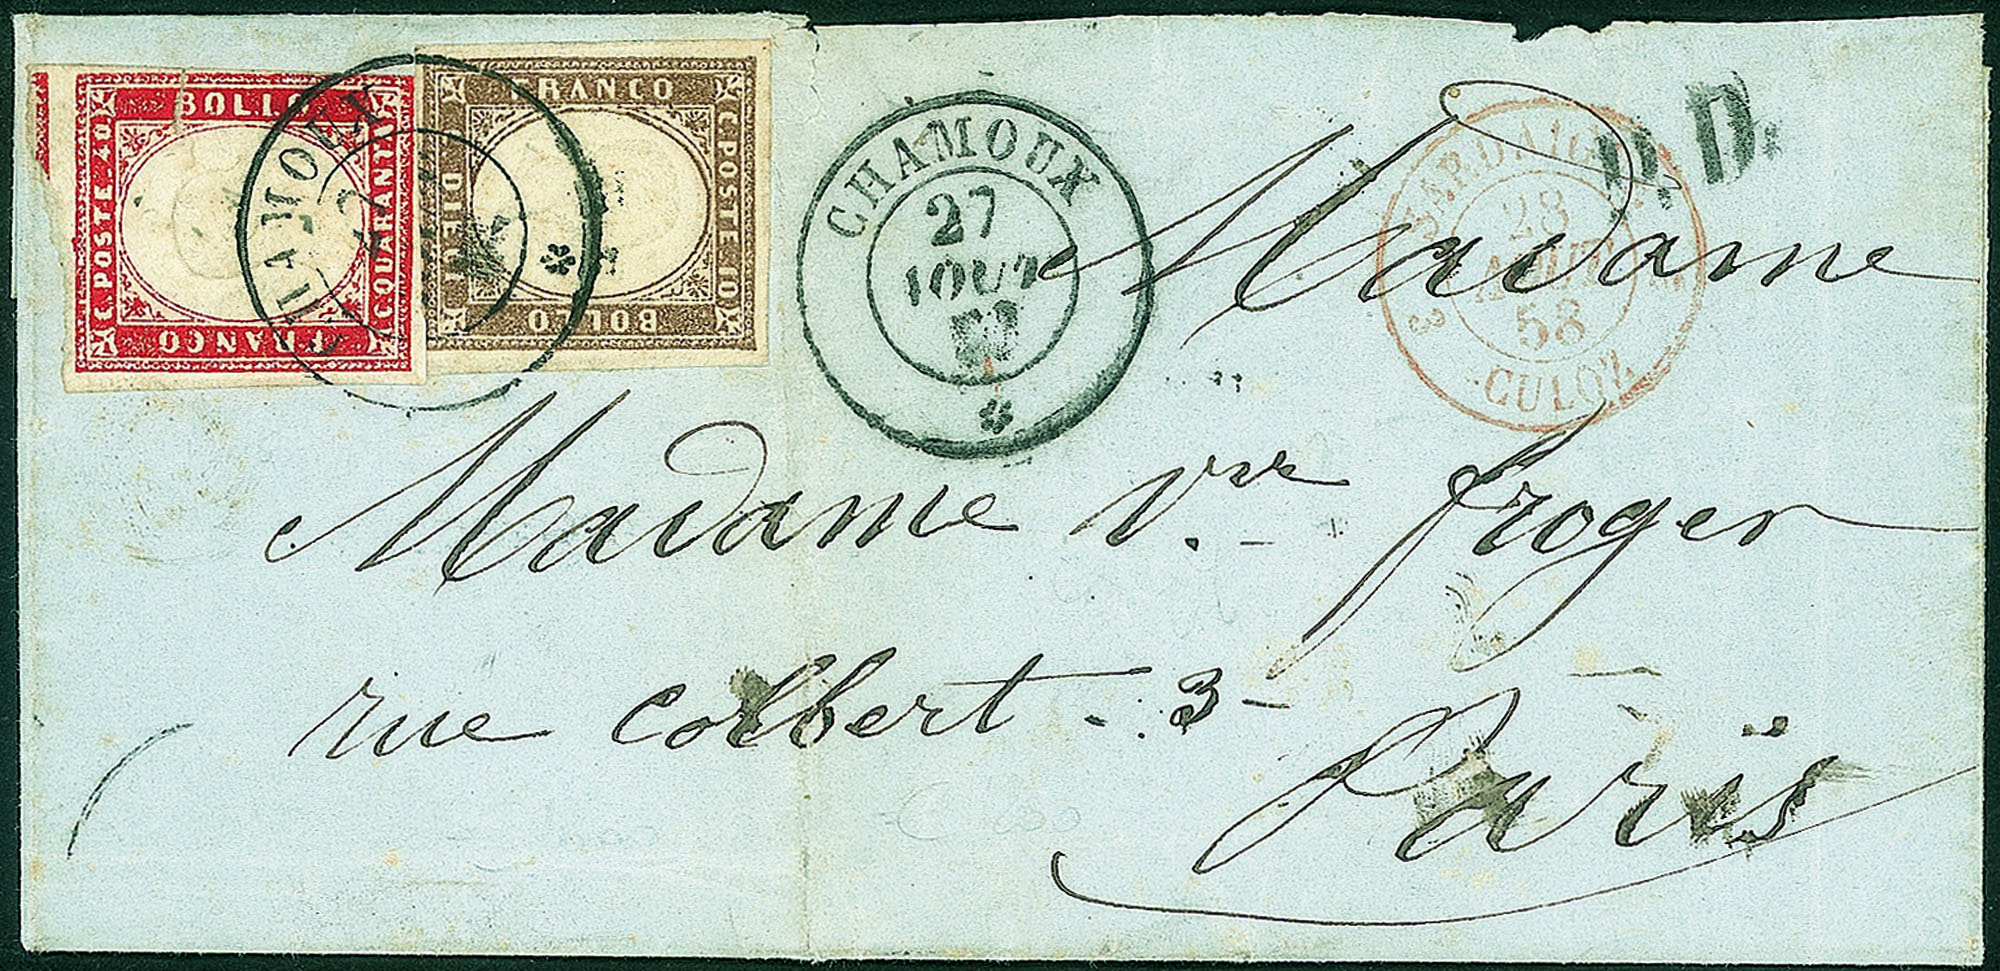 BOLLO
C. POSTE. 40
C. QUARANTA
FRANCO
FRANCO
C. POSTE 10
C. DIECI
BOLLO
CHAMOUX
27
CHAMOUX
27
AOUT
P.D.
3 SARDAIGNE
28
AOUT
58
CULOZ
Madame
Madame Vve froger
rue colbert - 3 -
Paris